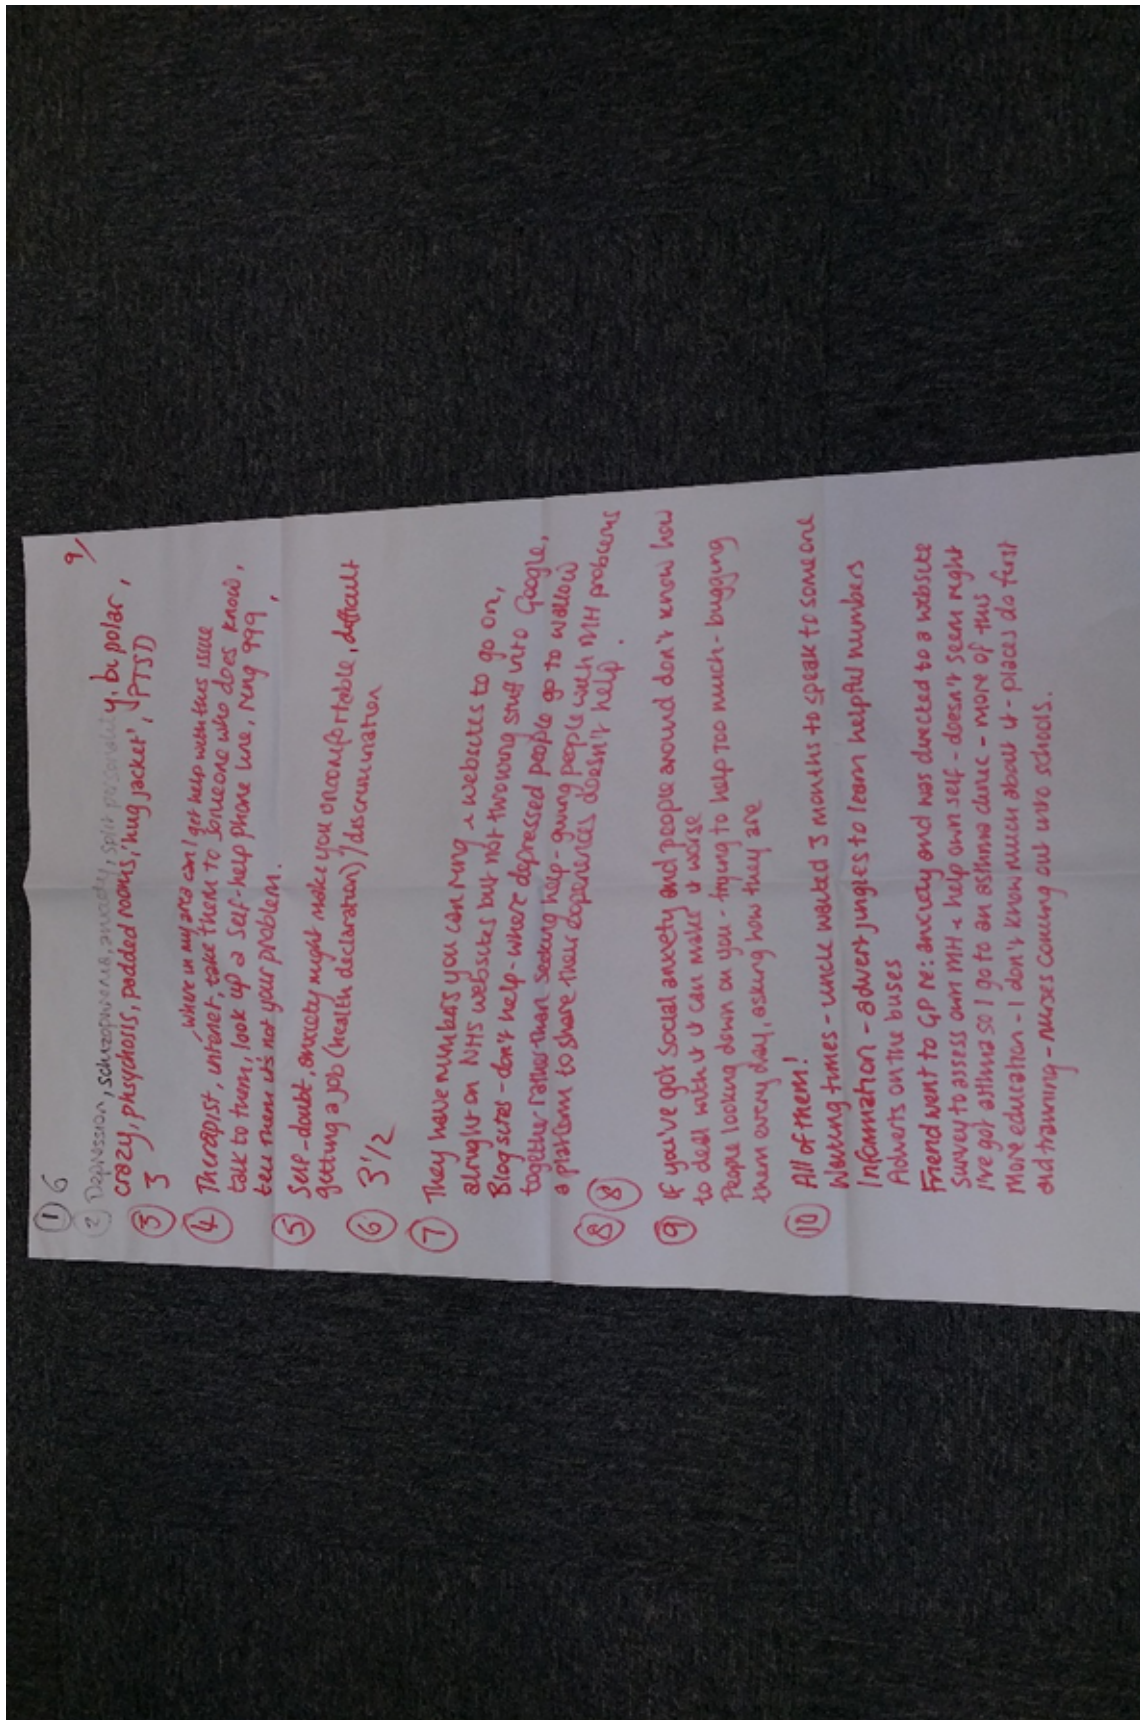 9/
① 6
② Depression, schizophrenia, anxiety, split personality, bi polar,
crazy, phsychosis, padded rooms, 'hug jacket', PTSD
③ 3
where in my area can I get help with this issue
④ Therapist, internet, take them to someone who does know,
talk to them, look up a self-help phone line, ring 999,
tell them it's not your problem.
⑤ Self-doubt, anxiety might make you uncomfortable, difficult
getting a job (health declaration)/discrimination
⑥ 3 1/2
⑦ They have numbers you can ring & websites to go on,
alright on NHS websites but not throwing stuff into Google,
Blog sites - don't help - where depressed people go to wallow
together rather than seeking help - giving people with MH problems
a platform to share their experiences doesn't help.
⑧ ⑧
⑨ If you've got social anxiety and people around don't know how
to deal with it it can make it worse
People looking down on you - trying to help too much - bugging
them every day, asking how they are
⑩ All of them!
Waiting times - uncle waited 3 months to speak to someone
Information - advert jingles to learn helpful numbers
Adverts on the buses
Friend went to GP re: anxiety and was directed to a website
survey to assess own MH & help own self - doesn't seem right
I've got asthma so I go to an asthma clinic - more of this
More education - I don't know much about it - places do first
aid training - nurses coming out into schools.